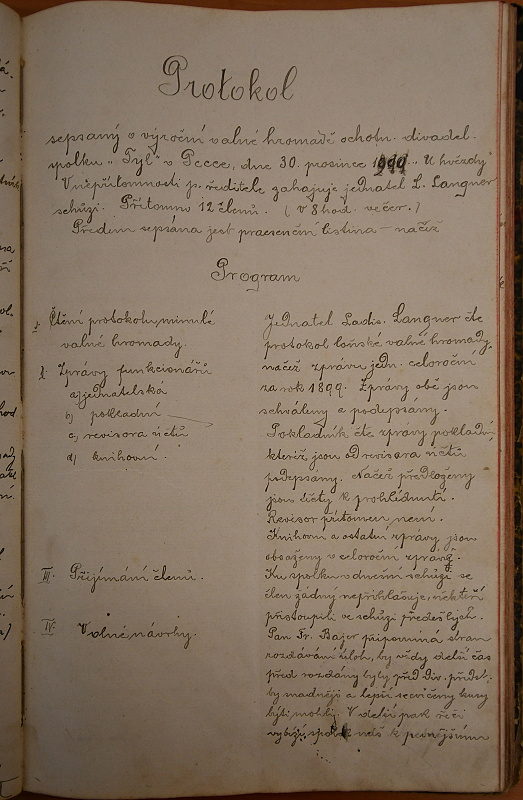 Protokol
sepsaný o výroční valné hromadě ochotn. divadel.
spolku „Tyl" v Pecce, dne 30. prosince 1899. „U hvězdy"
V nepřítomnosti p. ředitele zahajuje jednatel L. Langner
schůzi. Přítomno 12 členů. (v 8 hod. večer.)
Předem sepsána jest praesenční listina – načež
Program
I. Čtení protokolu minulé
valné hromady.
II. Zprávy funkcionářů
a) jednatelská
b) pokladní
c) revisora účtů
d) knihovní.
III. Přijímání členů.
IV. Volné návrhy.
Jednatel Ladis. Langner čte
protokol loňské valné hromady,
načež zprávu jedn. celoroční
za rok 1899. Zprávy obě jsou
schváleny a podepsány.
Pokladník čte zprávy pokladní,
kteréž jsou od revisora účtů
podepsany. Načež předloženy
jsou účty k prohlédnutí.
Revisor přítomen není.
Knihovní a ostatní zprávy jsou
obsaženy v celoroční zprávě.
Ku spolku v dnešní schůzi se
člen žádný nepřihlašuje, někteří
přistoupili ve schůzi předešlých.
Pan Fr. Bajer připomíná stran
rozdávání úloh, by vždy delší čas
před rozdány byly před div. předst.
by snadněji a lepší secvičeny kusy
býti mohly. V delší pak řeči
vybízí spolek náš k pevnějšímu